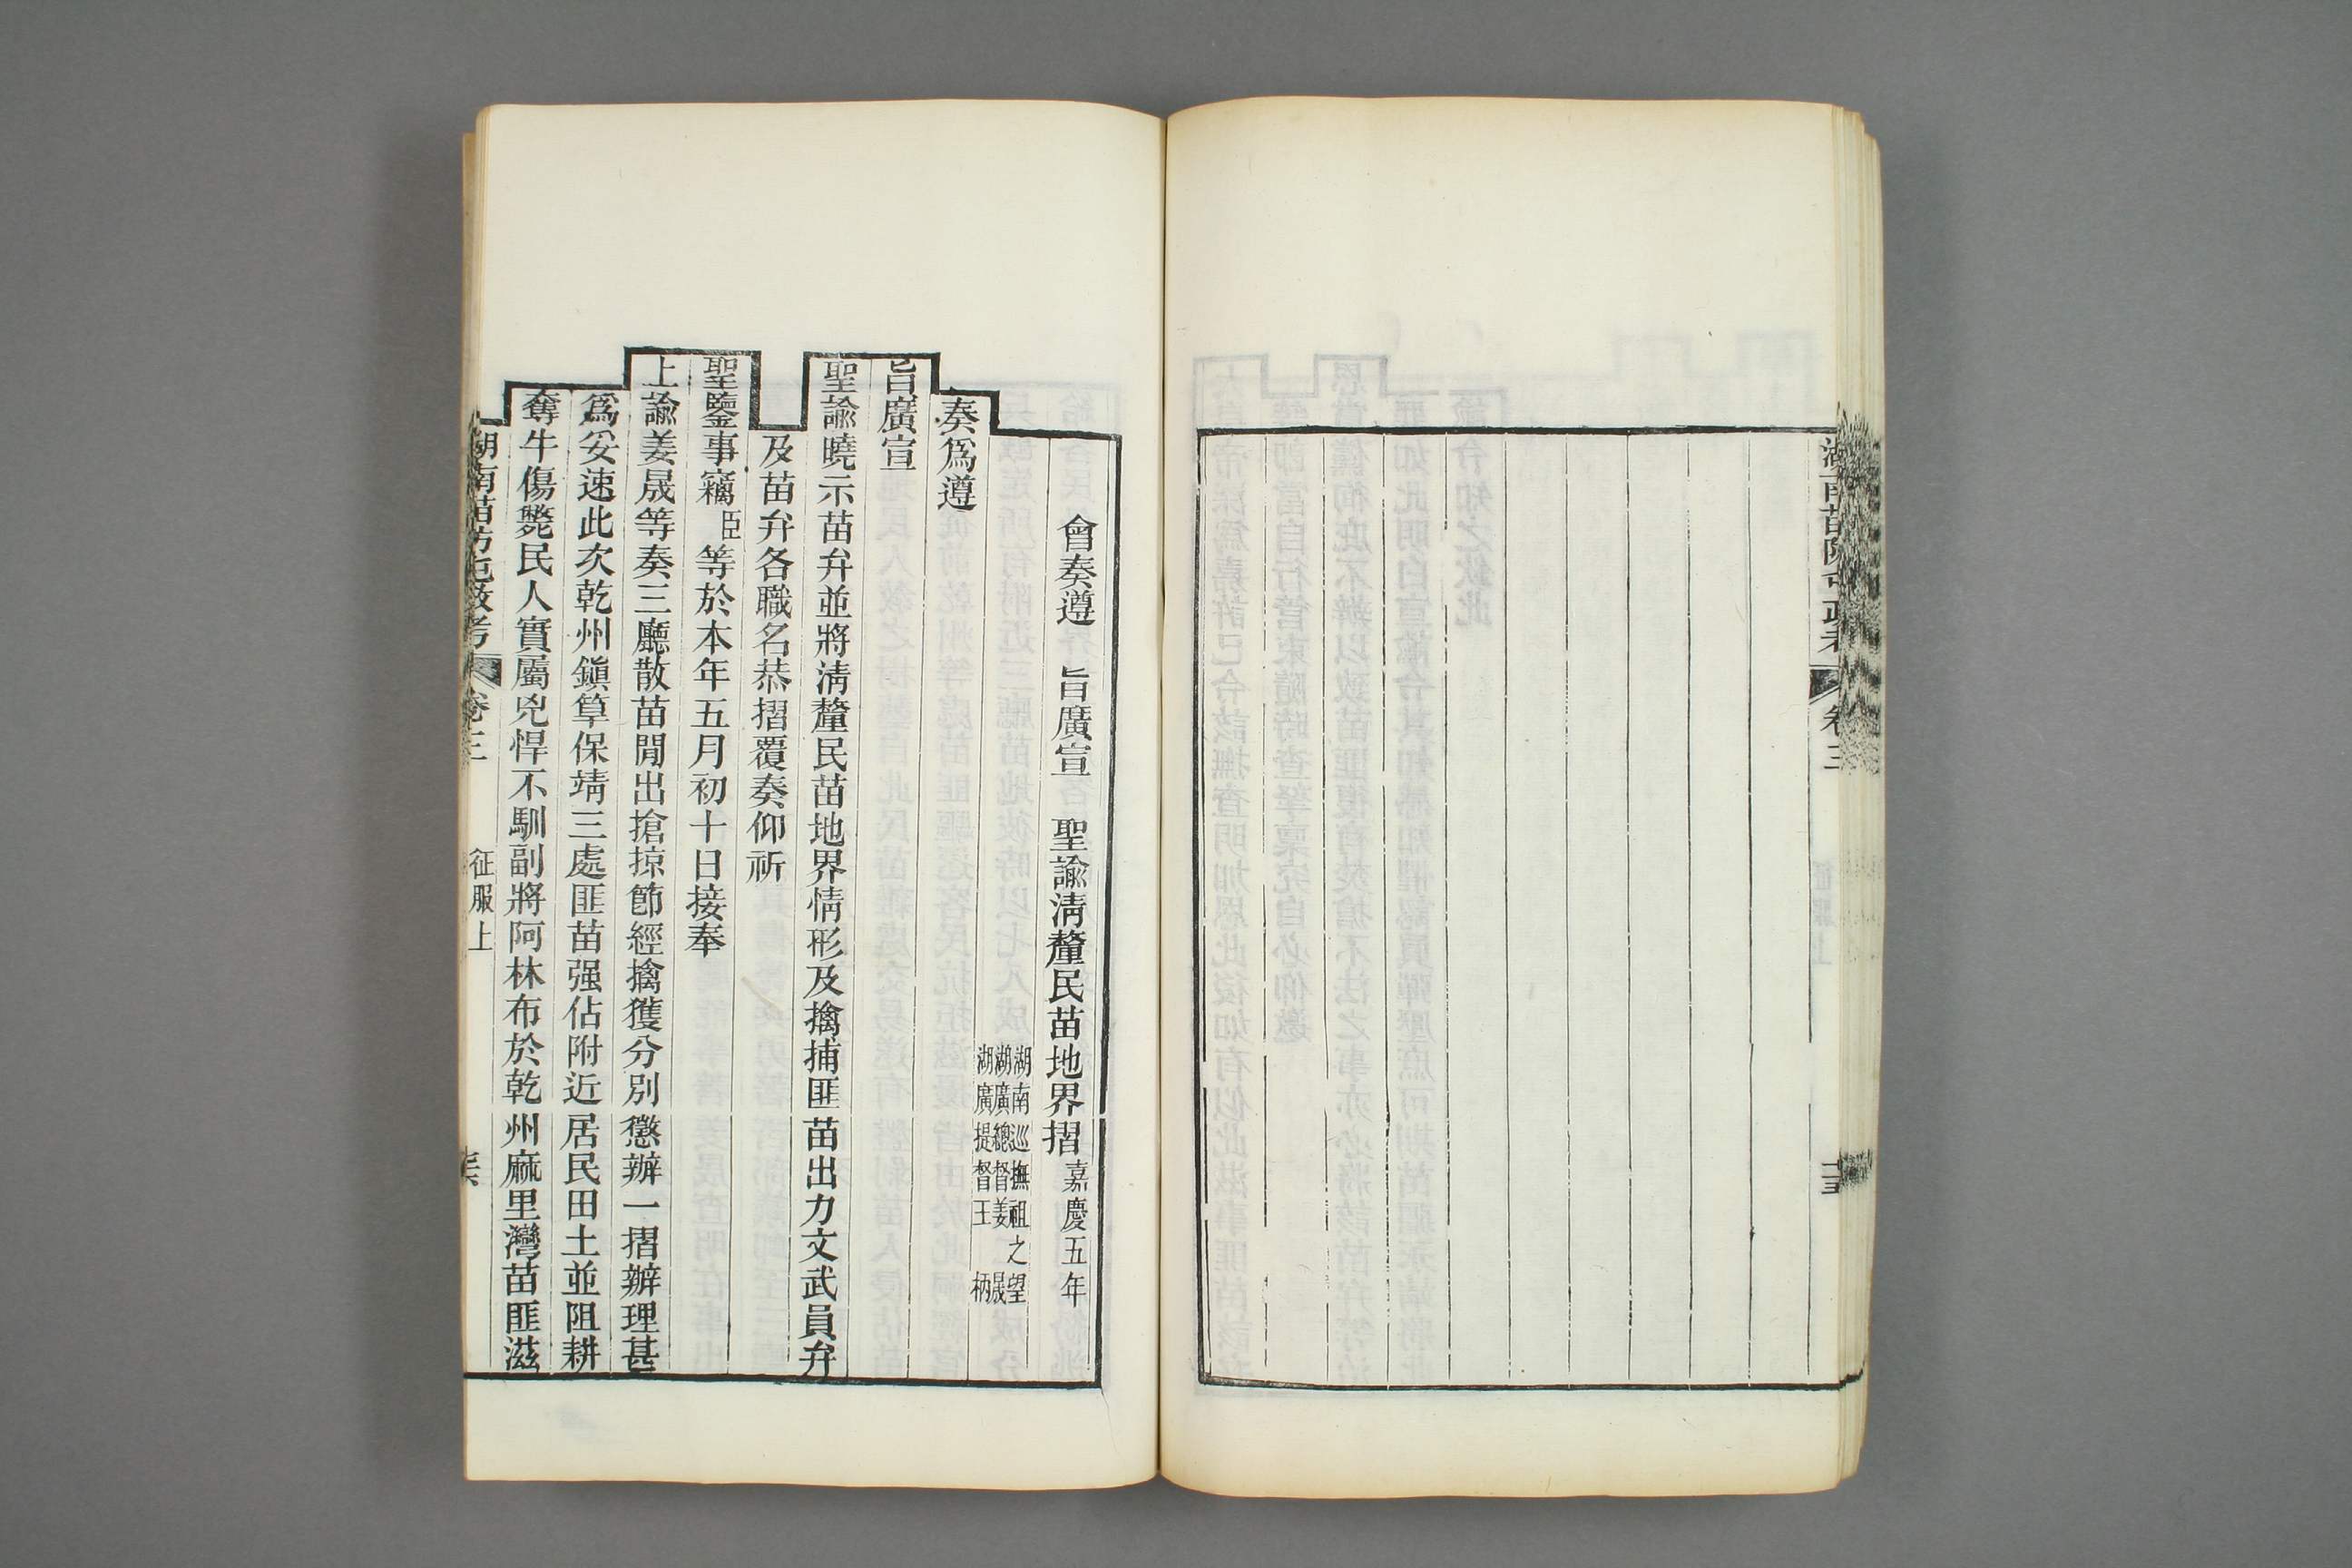 會奏遵　旨廣宣　聖諭淸釐民苗地界摺嘉慶五年
湖南巡撫祖之望
湖廣總督姜晟
湖廣提督王柄
奏爲遵
旨廣宣
聖諭曉示苗弁並將淸釐民苗地界情形及擒捕匪苗出力文武員弁
及苗弁各職名恭摺覆奏仰祈
聖鑒事竊臣等於本年五月初十日接奉
上諭姜晟等奏三廳散苗閒出搶掠節經擒獲分別懲辦一摺辦理甚
爲妥速此次乾州鎭筸保靖三處匪苗强佔附近居民田土並阻耕
奪牛傷斃民人實屬兇悍不馴副將阿林布於乾州麻里灣苗匪滋
湖南苗防屯政考
卷三
征服上